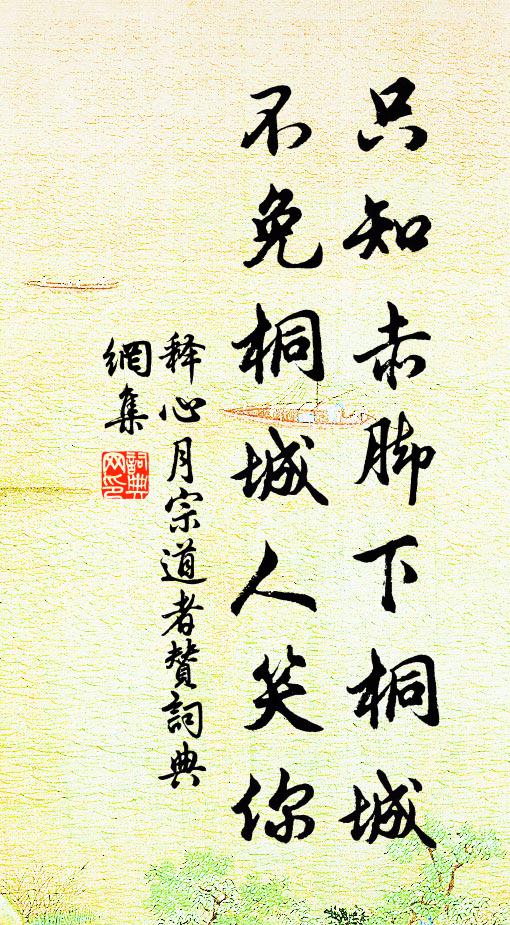 只知赤脚下桐城
不免桐城人笑你
释心月宗道者赞詞典
網集
詞典
网印